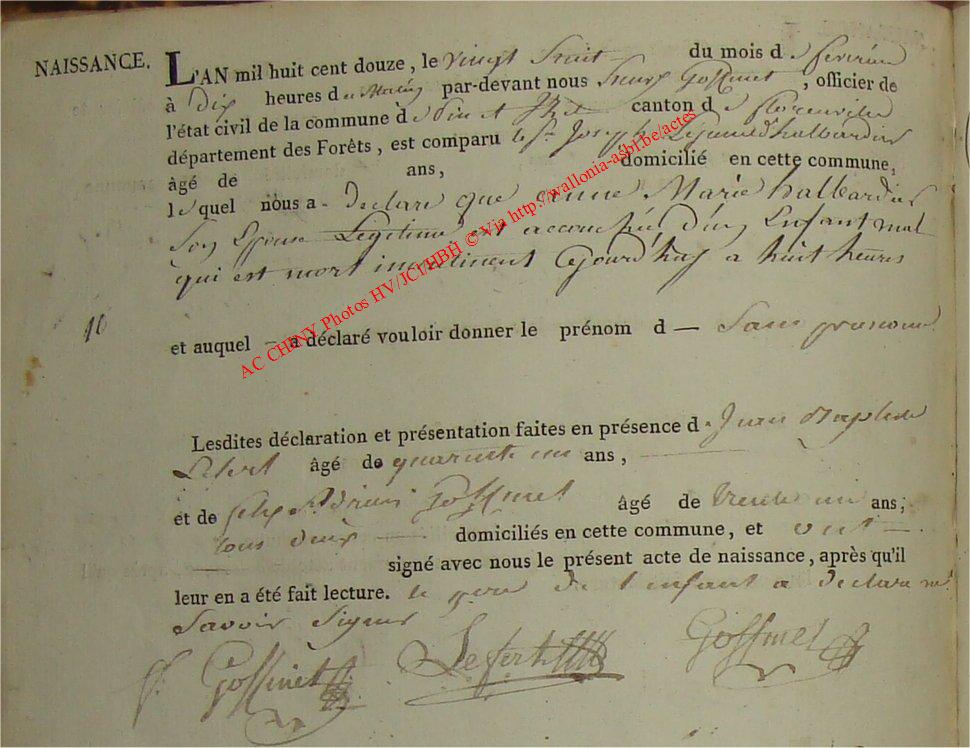 NAISSANCE.
L'AN mil huit cent douze, le vingt huit du mois de fevrier
à dix heures de Matin par-devant nous Gossinet, officier de
l'état civil de la commune de canton de florenville
département des Forêts, est comparu le Sr Joseph halbardier
âgé de ans, domicilié en cette commune,
lequel nous a declaré que anne Marie halbardier
son Epouse Legitime est accouchée d'un Enfant mal
qui est mort cejourd'huy a huit heures
10
et auquel - a déclaré vouloir donner le prénom d — Sans prenom
Lesdites déclaration et présentation faites en présence de Jean Baptiste
Lefert âgé de quarante un ans,
et de Gossinet âgé de trente un ans;
tous deux domiciliés en cette commune, et ont
signé avec nous le présent acte de naissance, après qu'il
leur en a été fait lecture. le pere de l'enfant a declaré ne
Savoir Signer
Gossinet Lefert Gossinet
AC CHINY Photos HV/JCI/HBH © Via http://wallonia-asbl.be/actes